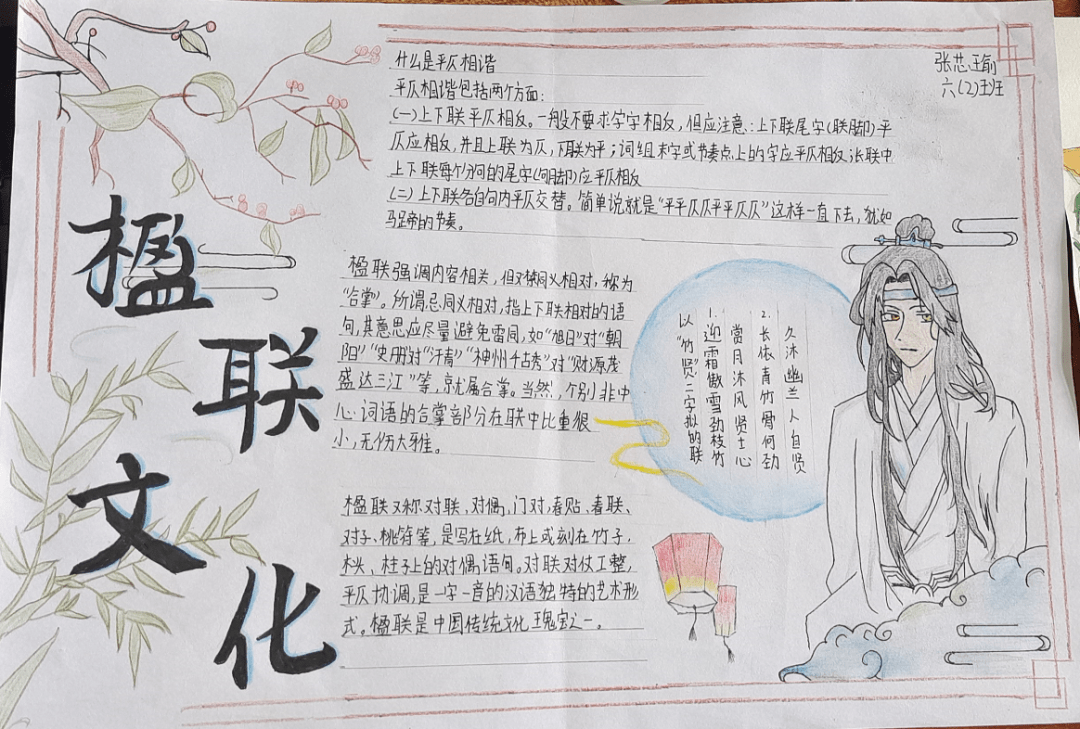 楹
联
文
化
张芯瑜
六(2)班
什么是平仄相谐
平仄相谐包括两个方面:
(一)上下联平仄相反。一般不要求字字相反,但应注意:上下联尾字(联脚)平
仄应相反,并且上联为仄,下联为平;词组末字或节奏点上的字应平仄相反;长联中
上下联每个分句的尾字(句脚)应平仄相反
(二)上下联各自句内平仄交替。简单说就是“平平仄仄平平仄仄”这样一直下去,犹如
马蹄的节奏。
楹联强调内容相关,但又禁同义相对,称为
“合掌”。所谓忌同义相对,指上下联相对的语
句,其意思应尽量避免雷同,如“旭日”对“朝
阳”“史册”对“汗青”“神州千古秀”对“财源茂
盛达三江”等,就属合掌。当然,个别非中
心词语的合掌部分在联中比重很
小,无伤大雅。
楹联又称对联,对偶,门对,春贴、春联、
对子、桃符等,是写在纸,布上或刻在竹子,
木头、柱子上的对偶语句。对联对仗工整,
平仄协调,是一字一音的汉语独特的艺术形
式。楹联是中国传统文化瑰宝之一。
久沐幽兰人自贤
2.长依青竹骨何劲
当月沐风贤士心
1.迎霜傲雪劲枝竹
以“竹贤”二字拟的联